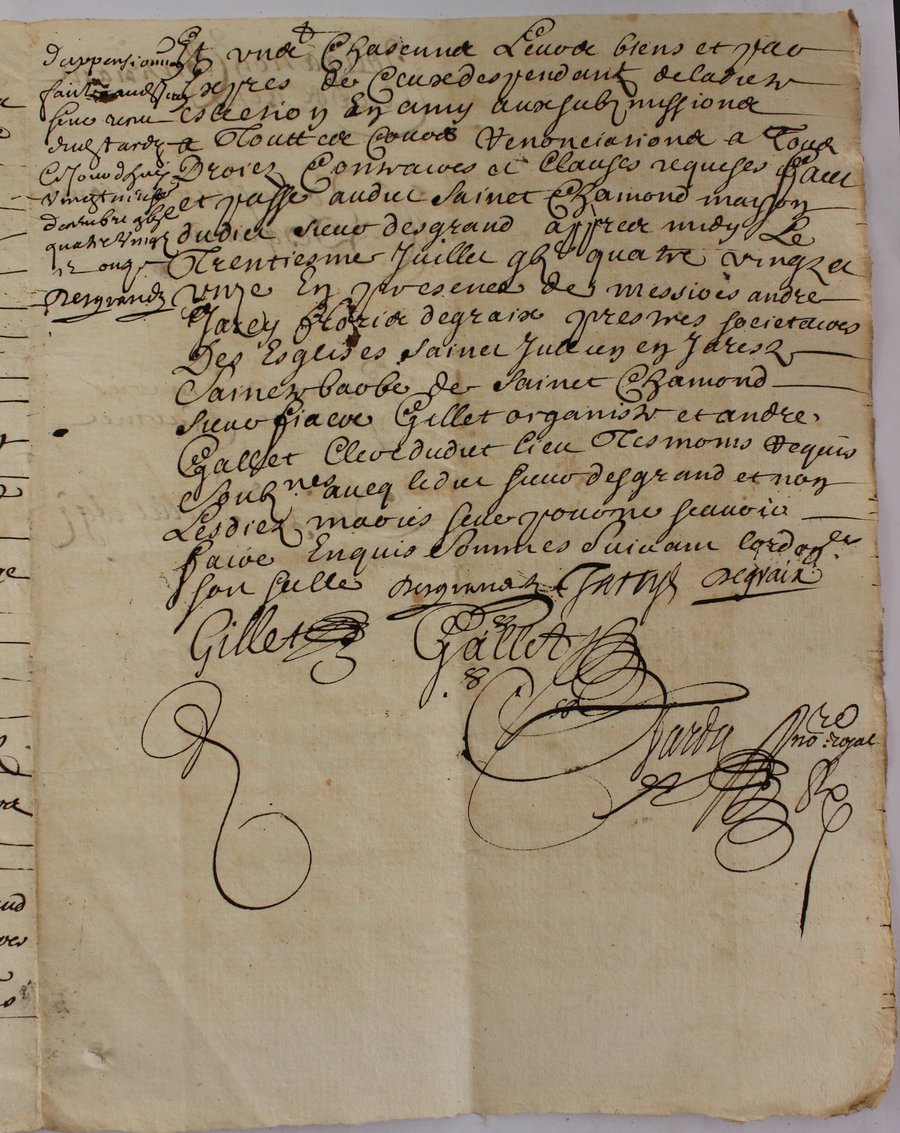 d'appensionne
faite
Ce Jourdhuy
vingt
decembre gbz
quatre vingt
et onze
Desgrandz
Et une Chascune Leurs biens et par
Expres de Ceux despendant de ladicte
En aux submissions
a Toutte Cours Renonciations a Tous
Droictz Contraires et Clauses requises Faict
et passé audict Sainct Chamond maison
dudict Sieur desgrand appres midy Le
Trentiesme Juillet gbz quatre vingtz et
unze En presence de messires andre
Jarey degraix prestres societaires
Des Esglises Sainct Jullien en Jarestz
Saincte barbe de Sainct Chamond
Sieur fiacre Gillet organiste et andre
Gallet Clerc dudict lieu Tesmoins requis
Soubznés avecq ledict Sieur desgrand et non
Lesdictz mariés pour ne scavoir
faire Enquis Sommes Suivant lordonce
son scelle Desgrandz Jarey Degraix
Gillet Gallet
no.re royal